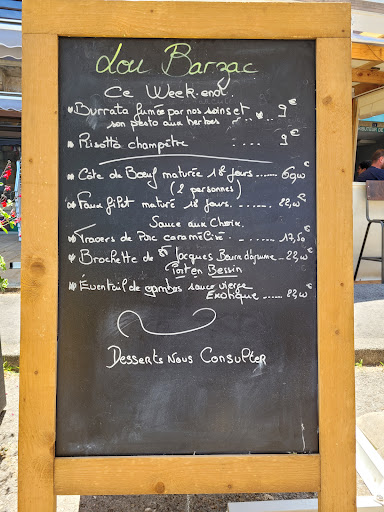 Lou Barzac
Ce Week-end
* Burrata fumée par nos soins et
son pesto aux herbes ........ 9€
* Risotto champêtre .... 9€
* Côte de Bœuf maturée 18 jours......
(2 personnes)
* Faux filet maturé 18 jours....... 22,00€
Sauce au Choix.
* Travers de Porc caramélisé ....... 17,50€
* Brochette de St Jacques Beurre d'agrume ... 22,00€
Port en Bessin
* Éventail de gambas sauce vierge
Exotique ....... 22,00€
Desserts Nous Consulter